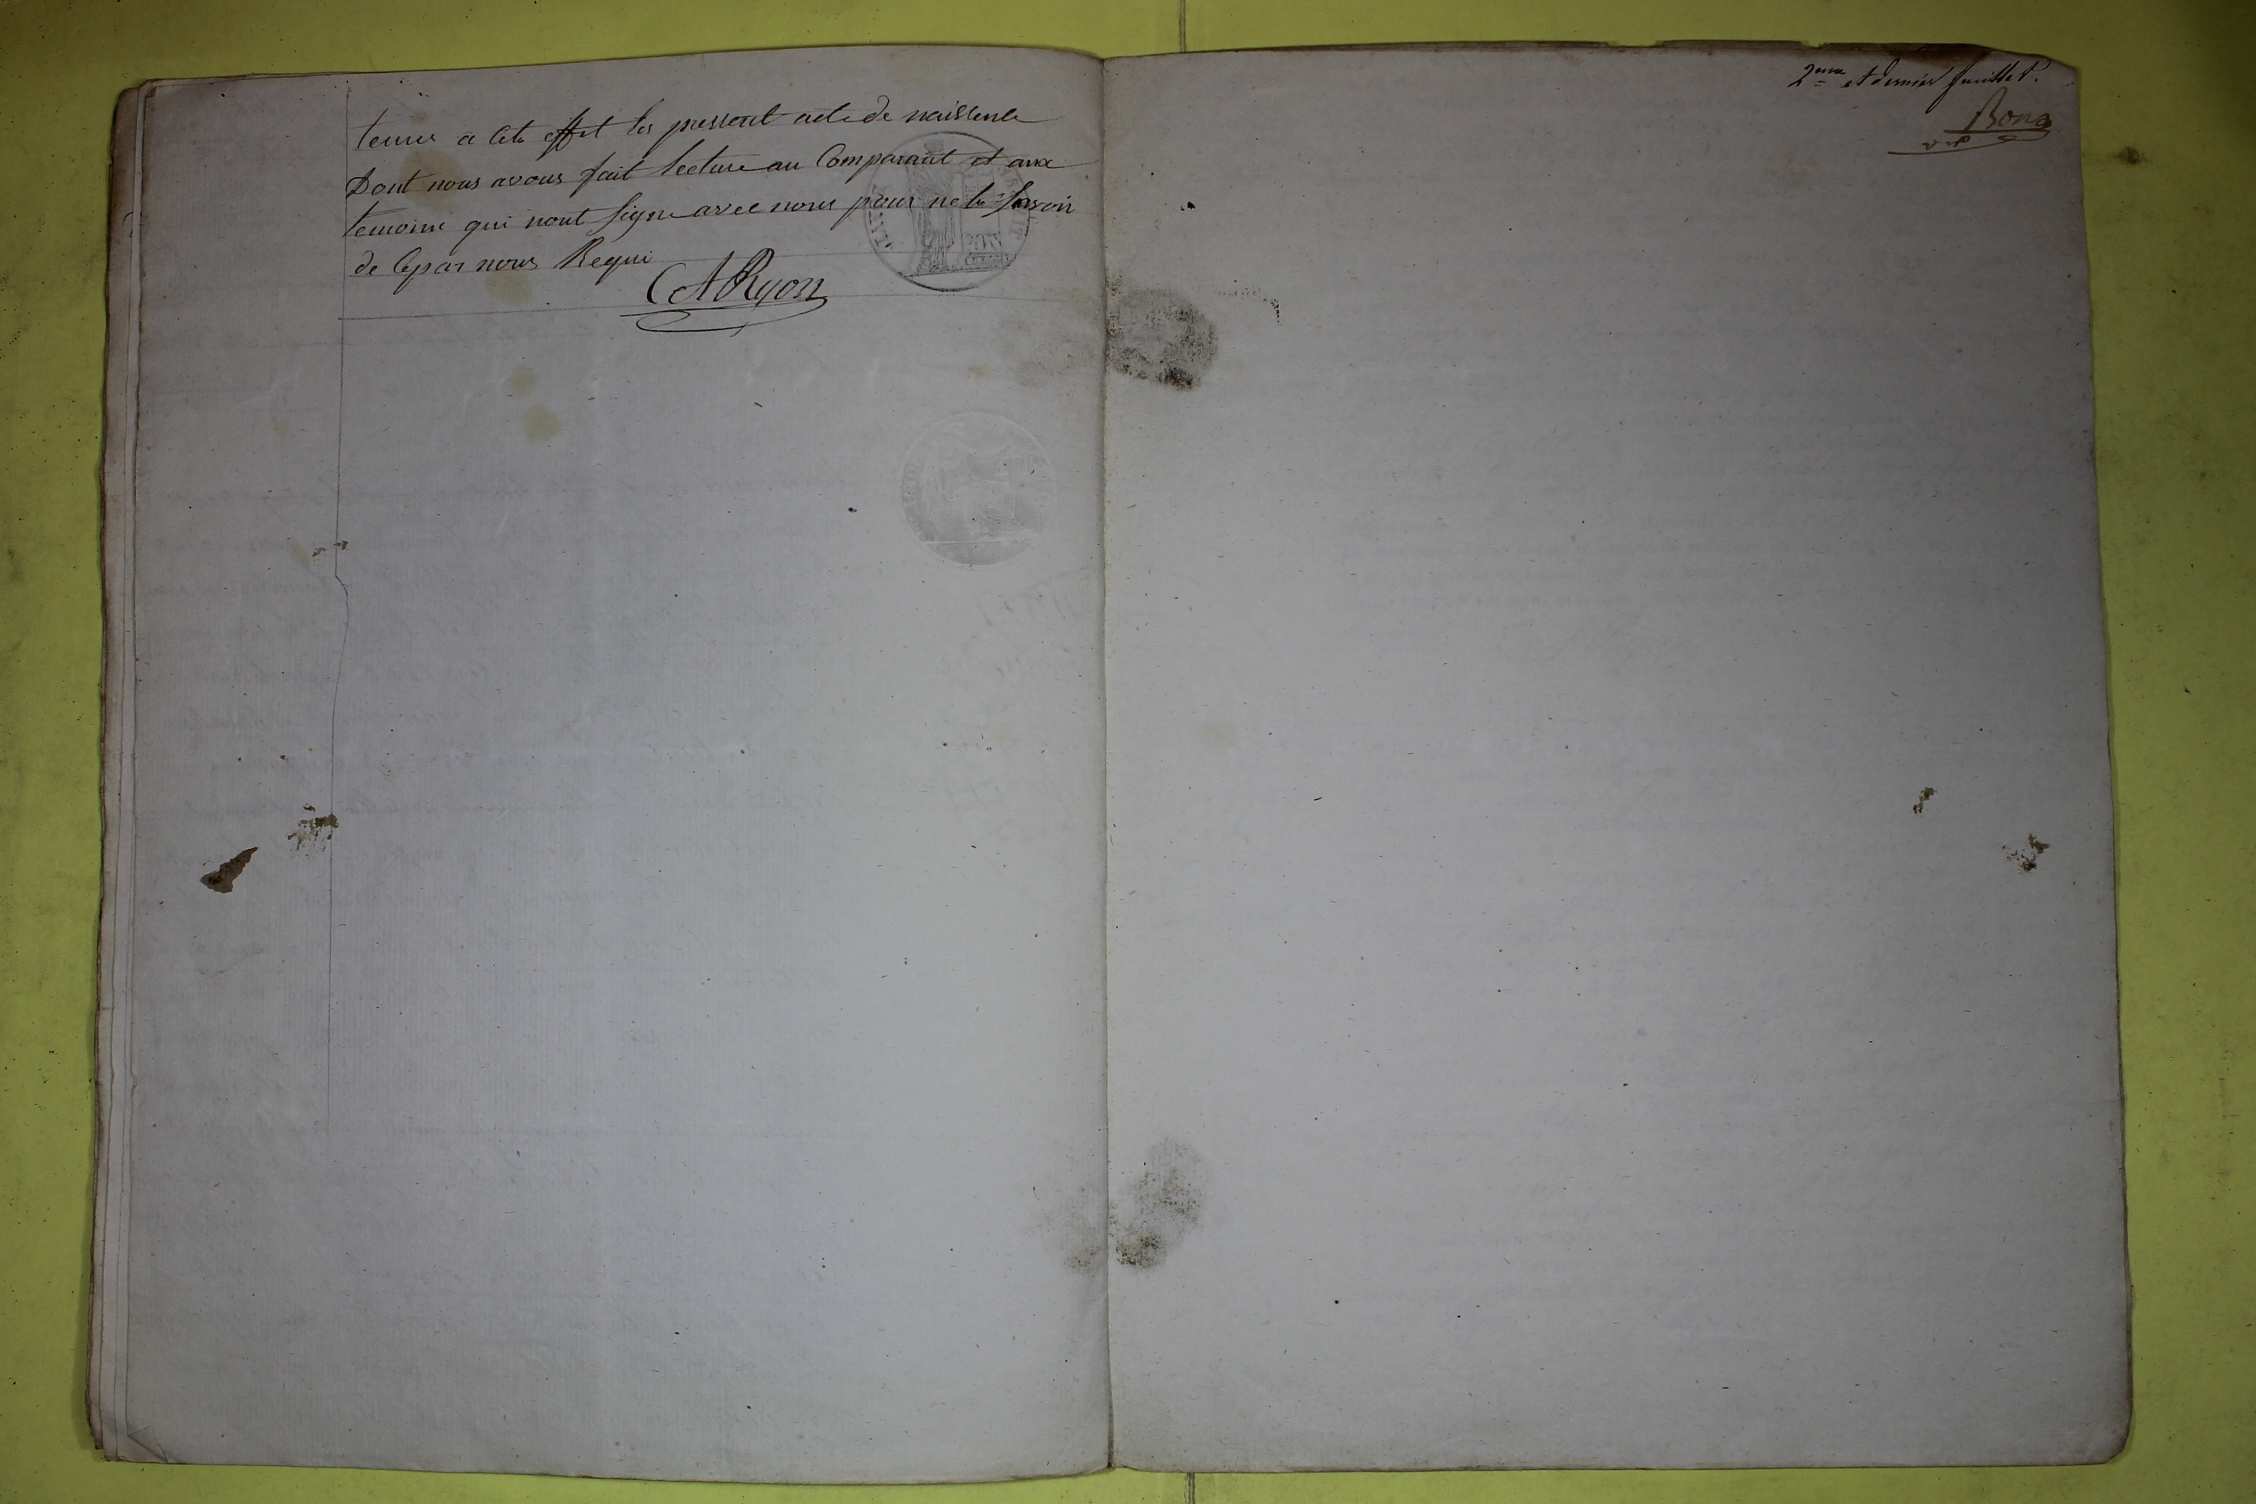 tenus a cete effet les pressent acte de naissence
Dont nous avons fait lecture au Comparant et aux
temoins qui nont signe avec nous pour ne le savoir
de ce par nous Requi
CARyon
2eme et dernier feuillet.
Bona